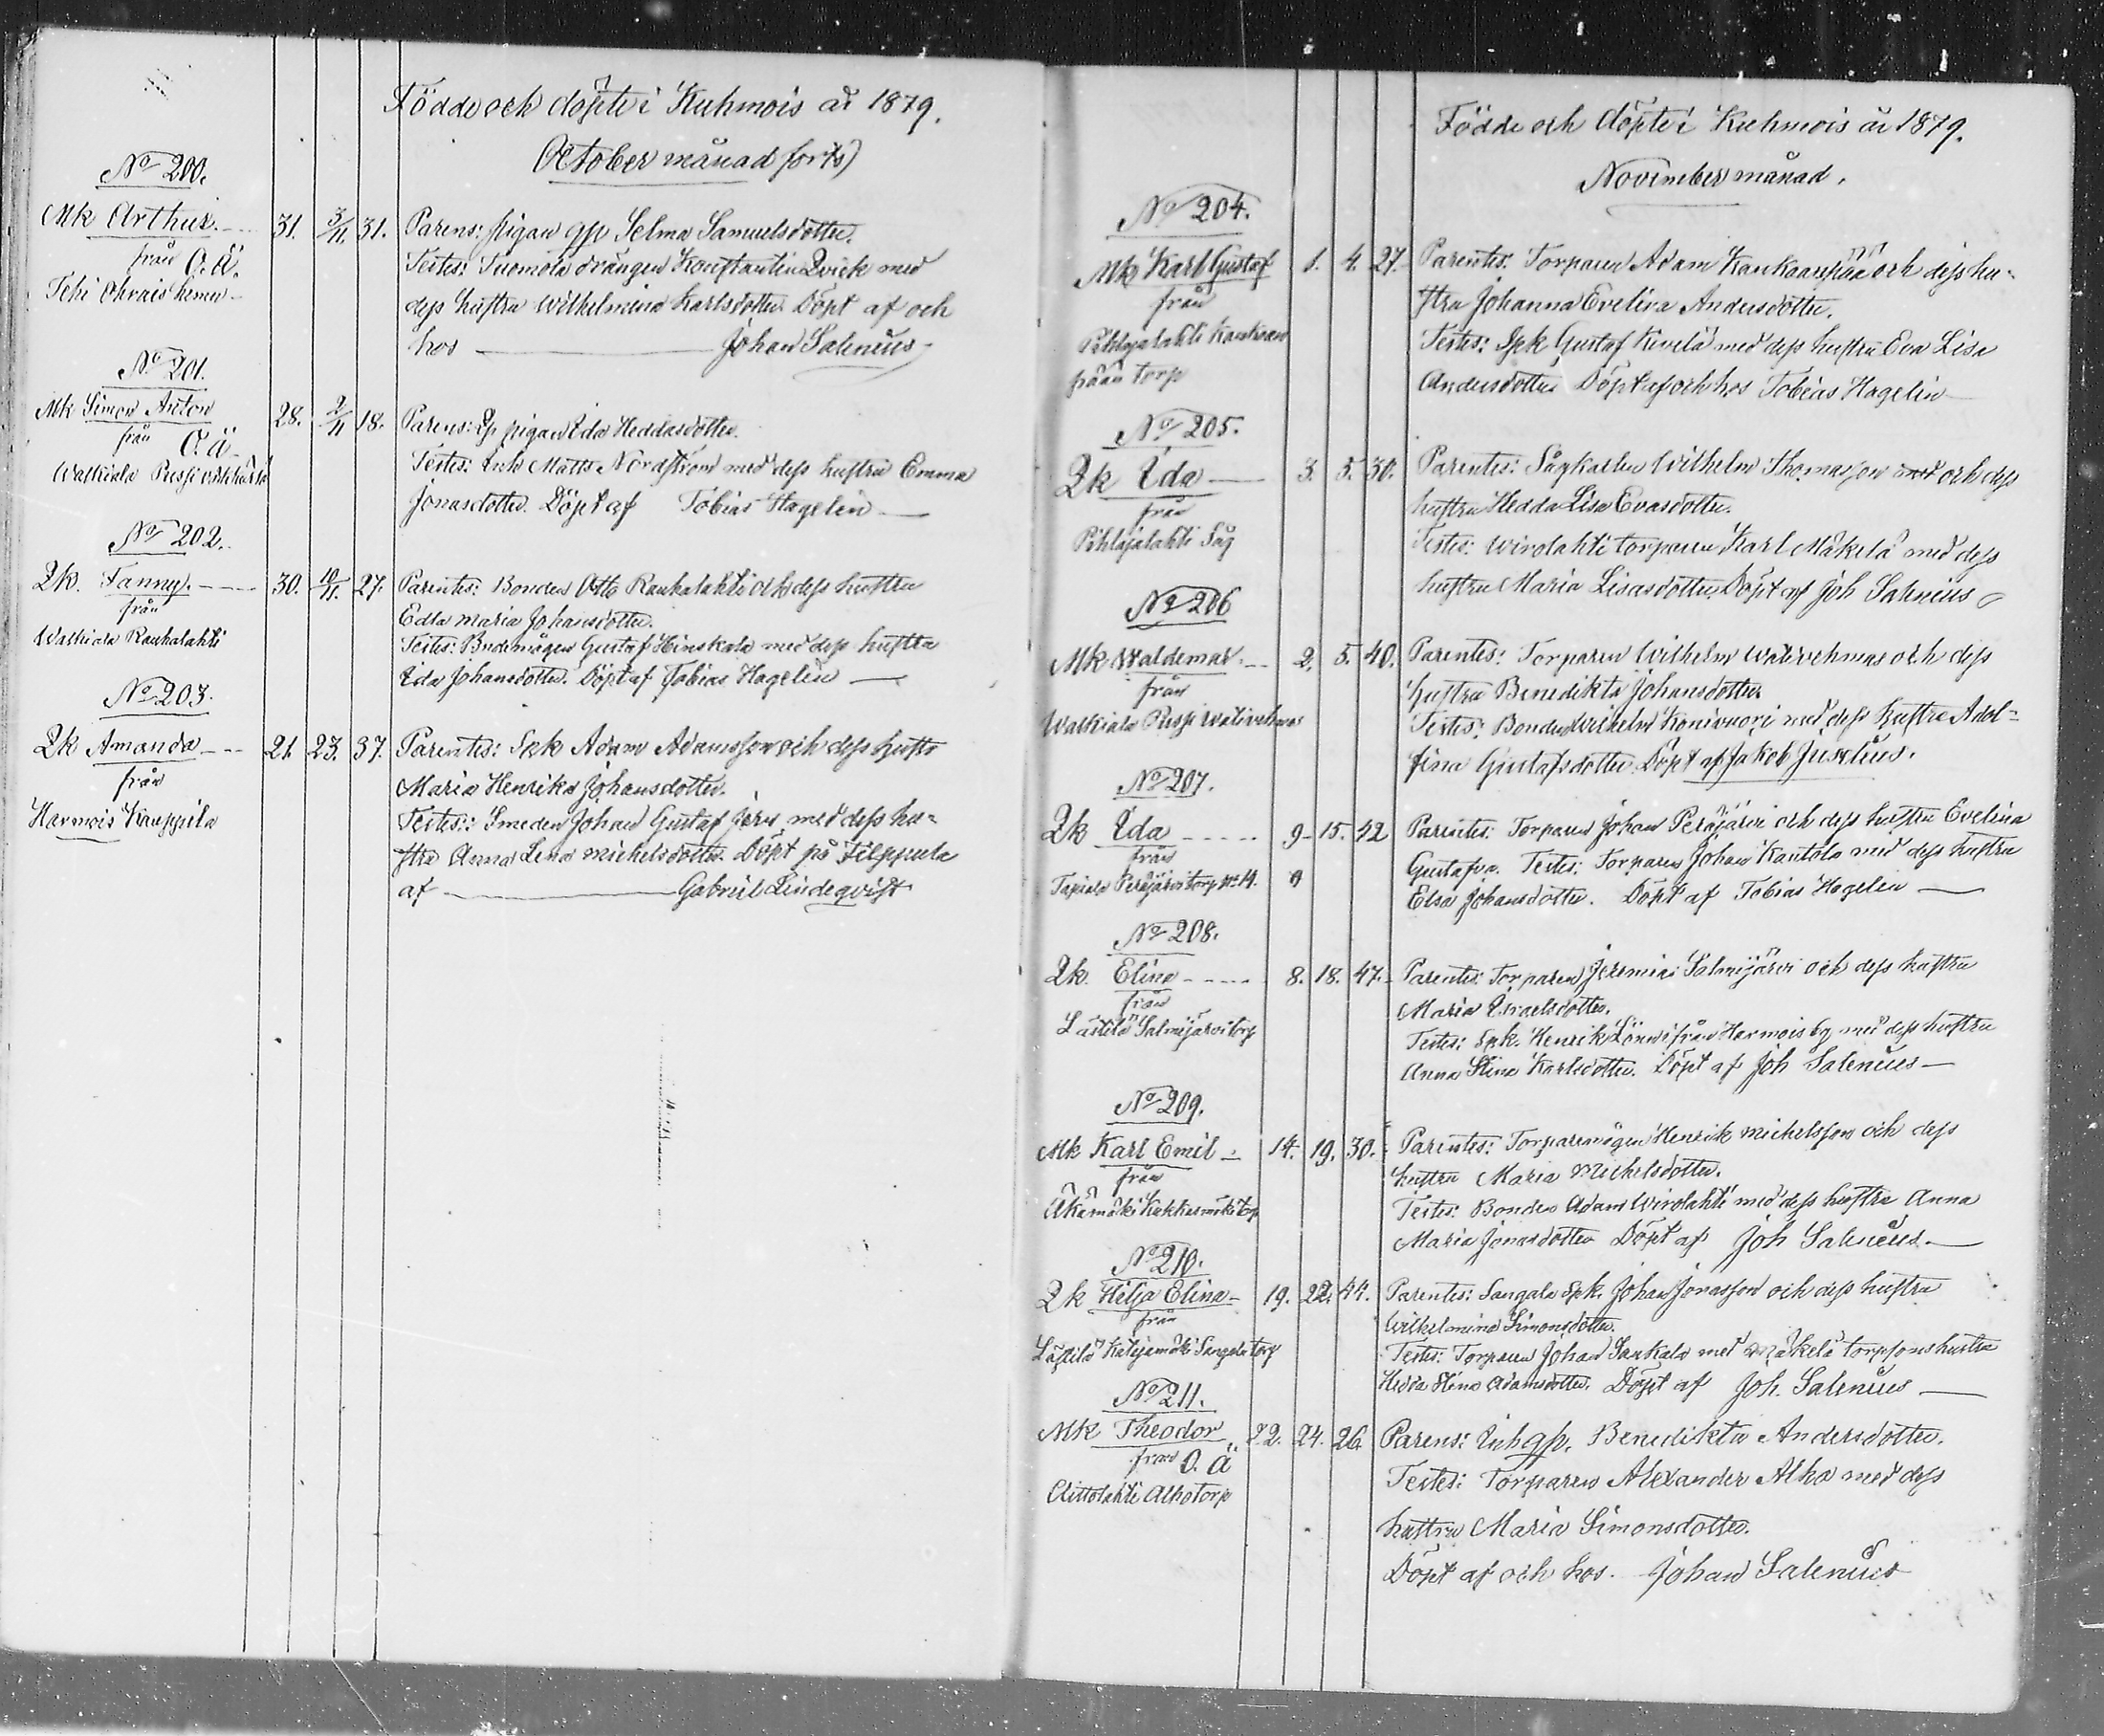 Födde och döpte i Kuhmois år 1879.
October månad forts)
No 200.
Mk Arthur. 31. 3/11. 31.
från O. ä.
Tehi Ohrais hemn
Parens: pigan qsp Selma Samuelsdotter.
Testes: Tuomola drängen Konstantin Qvick med
dess hustru Wilhelmina Karlsdotter. Döpt af och
hos Johan Salenius
No 201.
Mk Simon Anton 28. 2/11 18.
från O. ä
Walkiala Pussi
Parens: pigan Ida Heddasdotter.
Testes: Inh Matts Nordström med dess hustru Emma
Jonasdotter. Döpt af Tobias Hagelin
No 202.
Qk. Fanny. 30. 10/11. 27.
från
Walkiala Rauhalahti
Parentes: Bonden Otto Rauhalahti och dess hustru
Edla Maria Johansdotter.
Testes: Bndemågen Gustaf Hinskala med dess hustru
Ida Johansdotter. Döpt af Tobias Hagelin
No 203.
Qk Amanda 21. 23. 37.
från
Harmois Kauppila
Parentes: Spk Adam Adamsson och dess hustr
Maria Henrika Johansdotter.
Testes: Smeden Johan Gustaf Jern med dess hu-
stru Anna Lena Michelsdotter. Döpt på Filppula
af Gabriel Lindeqvist
Födde och döpte i Kuhmois år 1879.
November månad.
No 204.
Mk Karl Gustaf 1. 4. 27.
från
Pihlajalahti Kankaan
pään torp
Parentes: Torparen Adam Kankaanpää och dess hu-
stru Johanna Evelina Andersdotter.
Testes: Spk Gustaf Kivelä med dess hustru Eva Lisa
Andersdotter Döpt af och hos Tobias Hagelin
No 205.
Qk Ida 3. 5. 30.
från
Pihlajalahti Såg
Parentes: Sågkarlen Wilhelm Thomasson och dess
hustru Hedda Lisa Evasdotter.
Testes: Wirolahti torparen Karl Mäkelä med dess
hustru Maria Lisasdotter. Döpt af Joh Salenius
No 206
Mk Waldemar. 2. 5. 40.
från
Walkiala Pussi Wativehmas
Parentes: Torparen Wilhelm Wativehmas och dess
hustru Benedikta Johansdotter.
Testes: Bonden Wilhelm Konivuori med dess hustru Adol-
fina Gustafsdotter. Döpt af Jakob Juselius.
No 207.
Qk Ida 9. 15. 42
från
Tapiala Peräjärvi torp
Parentes: Torparen Johan Peräjärvi och dess hustru Evelina
Gustafva. Testes: Torparen Johan Kantola med dess hustru
Elsa Johansdotter. Döpt af Tobias Hagelin
No 208.
Qk. Elina 8. 18. 47.
från
Lästilä Salmijärvi torp
Parentes: Torparen Jeremias Salmijärvi och dess hustru
Maria Israelsdotter.
Testes: Spk. Henrik Lönn ifrån Harmois by med dess hustru
Anna Stina Karlsdotter. Döpt af Joh Salenius
No 209.
Mk Karl Emil 14. 19. 30.
från
Äkämäki Kukkarmäki torp
Parentes: Torparemågen Henrik Michelsson och dess
hustru Maria Michelsdotter.
Testes: Bonden Adam Wirolahti med dess hustru Anna
Maria Jonasdotter Döpt af Joh Salenius
No 210.
Qk Hilja Elina 19. 22. 44.
från
Lästilä Katajamäki Sangala torp
Parentes: Sangala Spk. Johan Jonasson och dess hustru
Wilhelmina Simonsdotter.
Testes: Torparen Johan Sankala med Mäkelä torpsonshustru
Hedda Stina Adamsdotter. Döpt af Joh. Salenius
No 211.
Mk Theodor 22. 24. 26.
från O. ä
Aittolahti Alho torp
Parens: Inh qsp. Benedikta Andersdotter.
Testes: Torparen Alexander Alho med dess
hustru Maria Simonsdotter.
Döpt af och hos. Johan Salenius